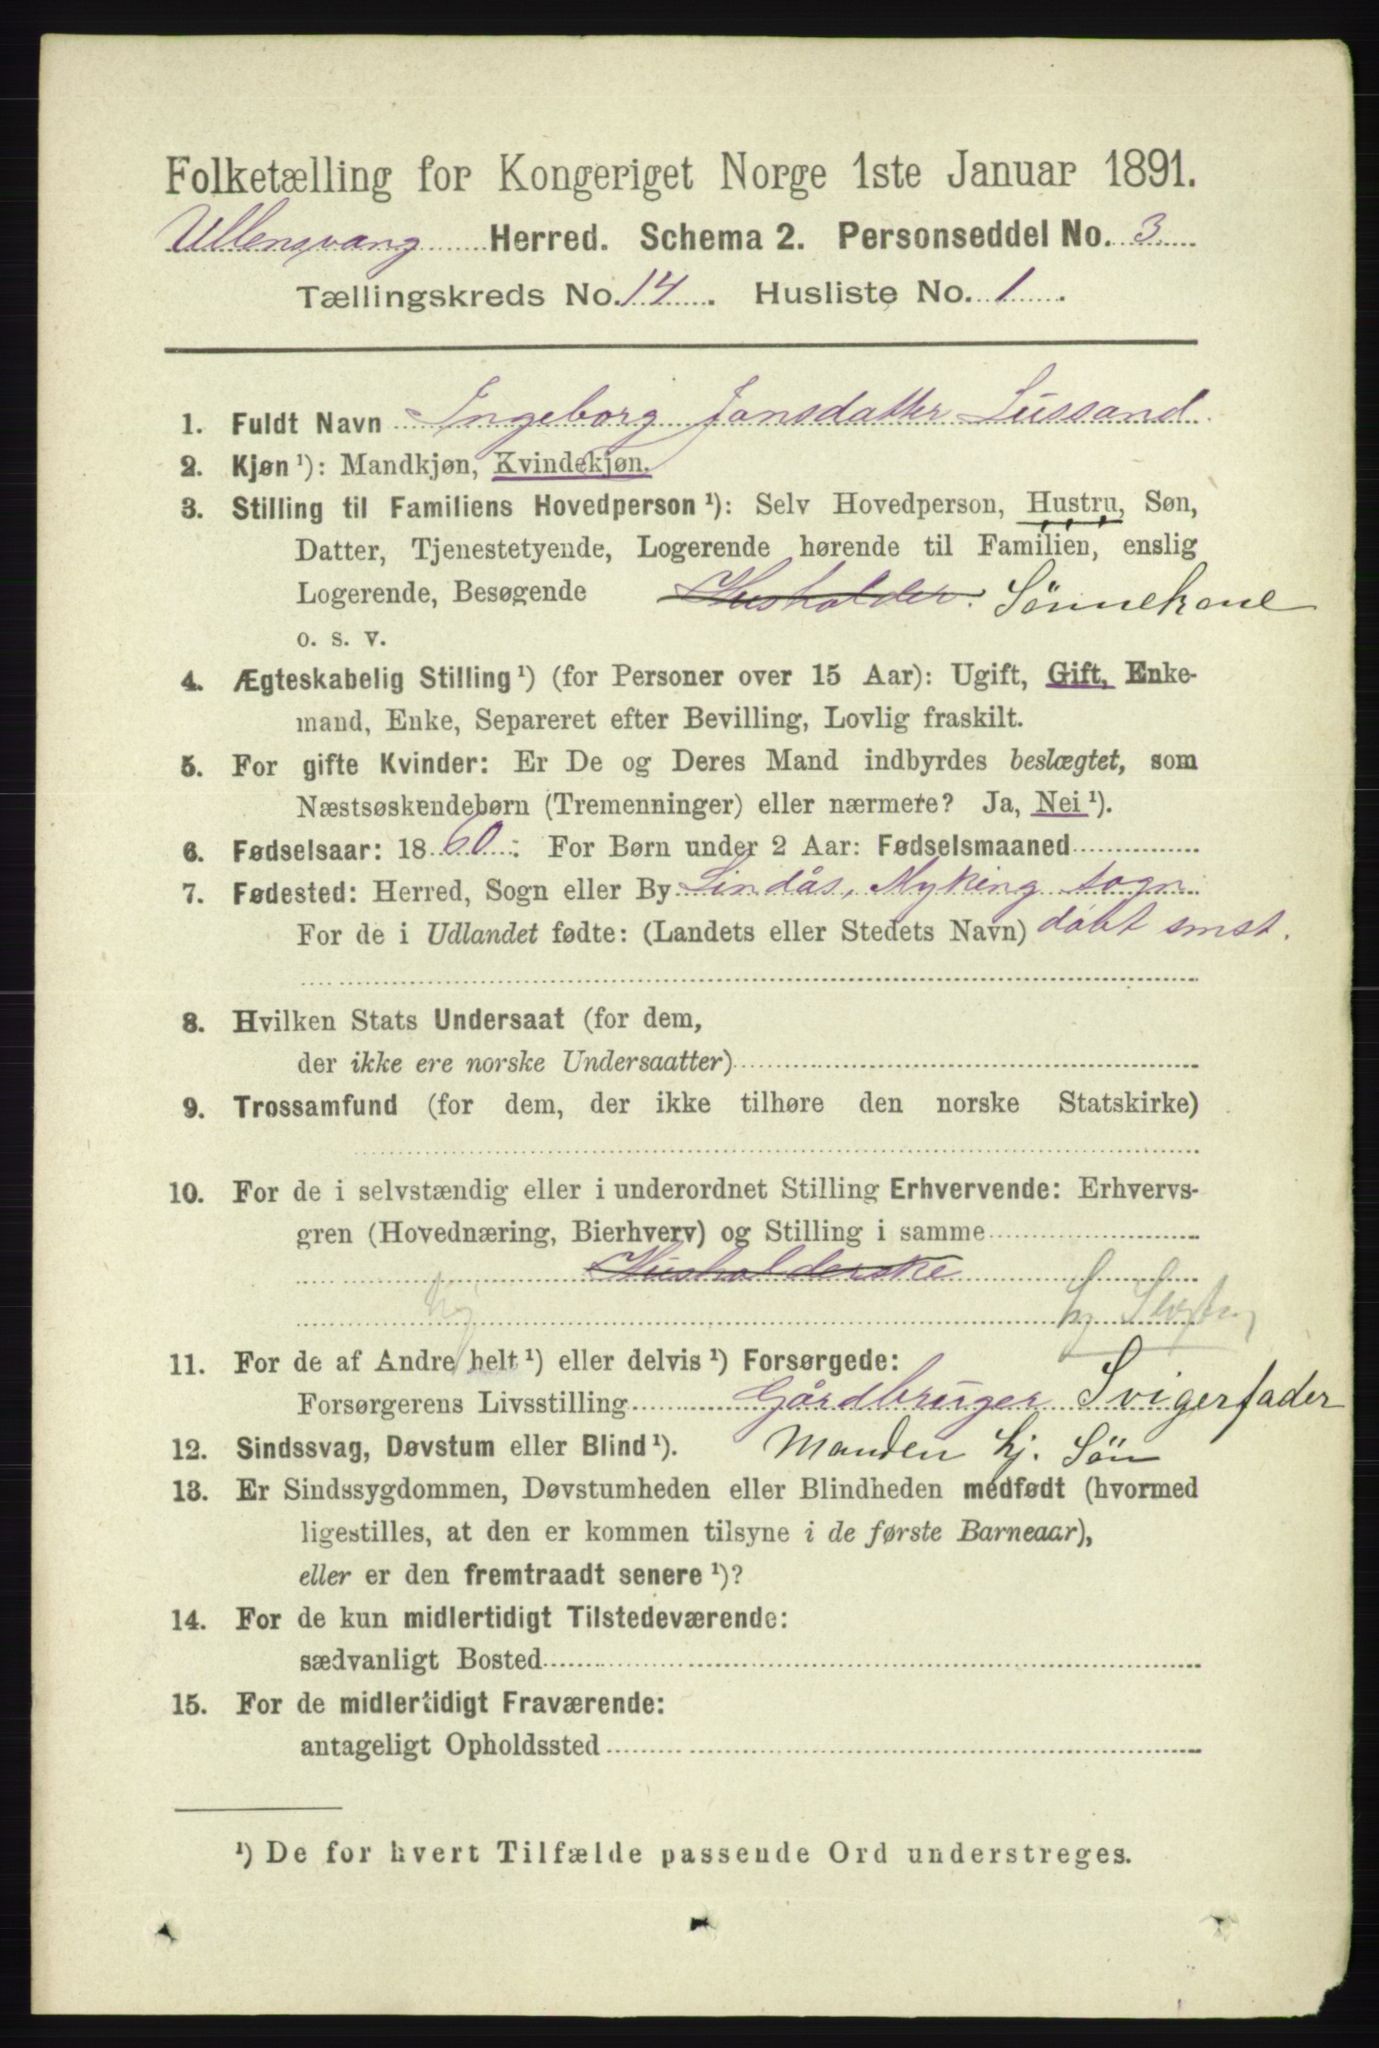 Folketælling for Kongeriget Norge 1ste Januar 1891.
Ullengvang Herred. Schema 2. Personseddel No. 3
Tællingskreds No. 14. Husliste No. 1.
1. Fuldt Navn Ingeborg Jonsdatter Lussand
2. Kjøn ¹): Mandkjøn, Kvindekjøn.
3. Stilling til Familiens Hovedperson ¹): Selv Hovedperson, Hustru, Søn,
Datter, Tjenestetyende, Logerende hørende til Familien, enslig
Logerende, Besøgende Husholder. Sönnekone
o. s. v.
4. Ægteskabelig Stilling ¹) (for Personer over 15 Aar): Ugift, Gift, Enke-
mand, Enke, Separeret efter Bevilling, Lovlig fraskilt.
5. For gifte Kvinder: Er De og Deres Mand indbyrdes beslægtet, som
Næstsøskendebørn (Tremenninger) eller nærmere? Ja, Nei ¹).
6. Fødselsaar: 1860. For Børn under 2 Aar: Fødselsmaaned
7. Fødested: Herred, Sogn eller By Lindås, Myking sogn
For de i Udlandet fødte: (Landets eller Stedets Navn) döbt smst.
8. Hvilken Stats Undersaat (for dem,
der ikke ere norske Undersaatter)
9. Trossamfund (for dem, der ikke tilhøre den norske Statskirke)
10. For de i selvstændig eller i underordnet Stilling Erhvervende: Erhvervs-
gren (Hovednæring, Bierhverv) og Stilling i samme
Husholderske
hj
11. For de af Andre helt ¹) eller delvis ¹) Forsørgede:
Forsørgerens Livsstilling Gårdbruger Svigerfader
12. Sindssvag, Døvstum eller Blind ¹). Manden hj. Sön
13. Er Sindssygdommen, Døvstumheden eller Blindheden medfødt (hvormed
ligestilles, at den er kommen tilsyne i de første Barneaar),
eller er den fremtraadt senere ¹)?
14. For de kun midlertidigt Tilstedeværende:
sædvanligt Bosted
15. For de midlertidigt Fraværende:
antageligt Opholdssted
¹) De for hvert Tilfælde passende Ord understreges.